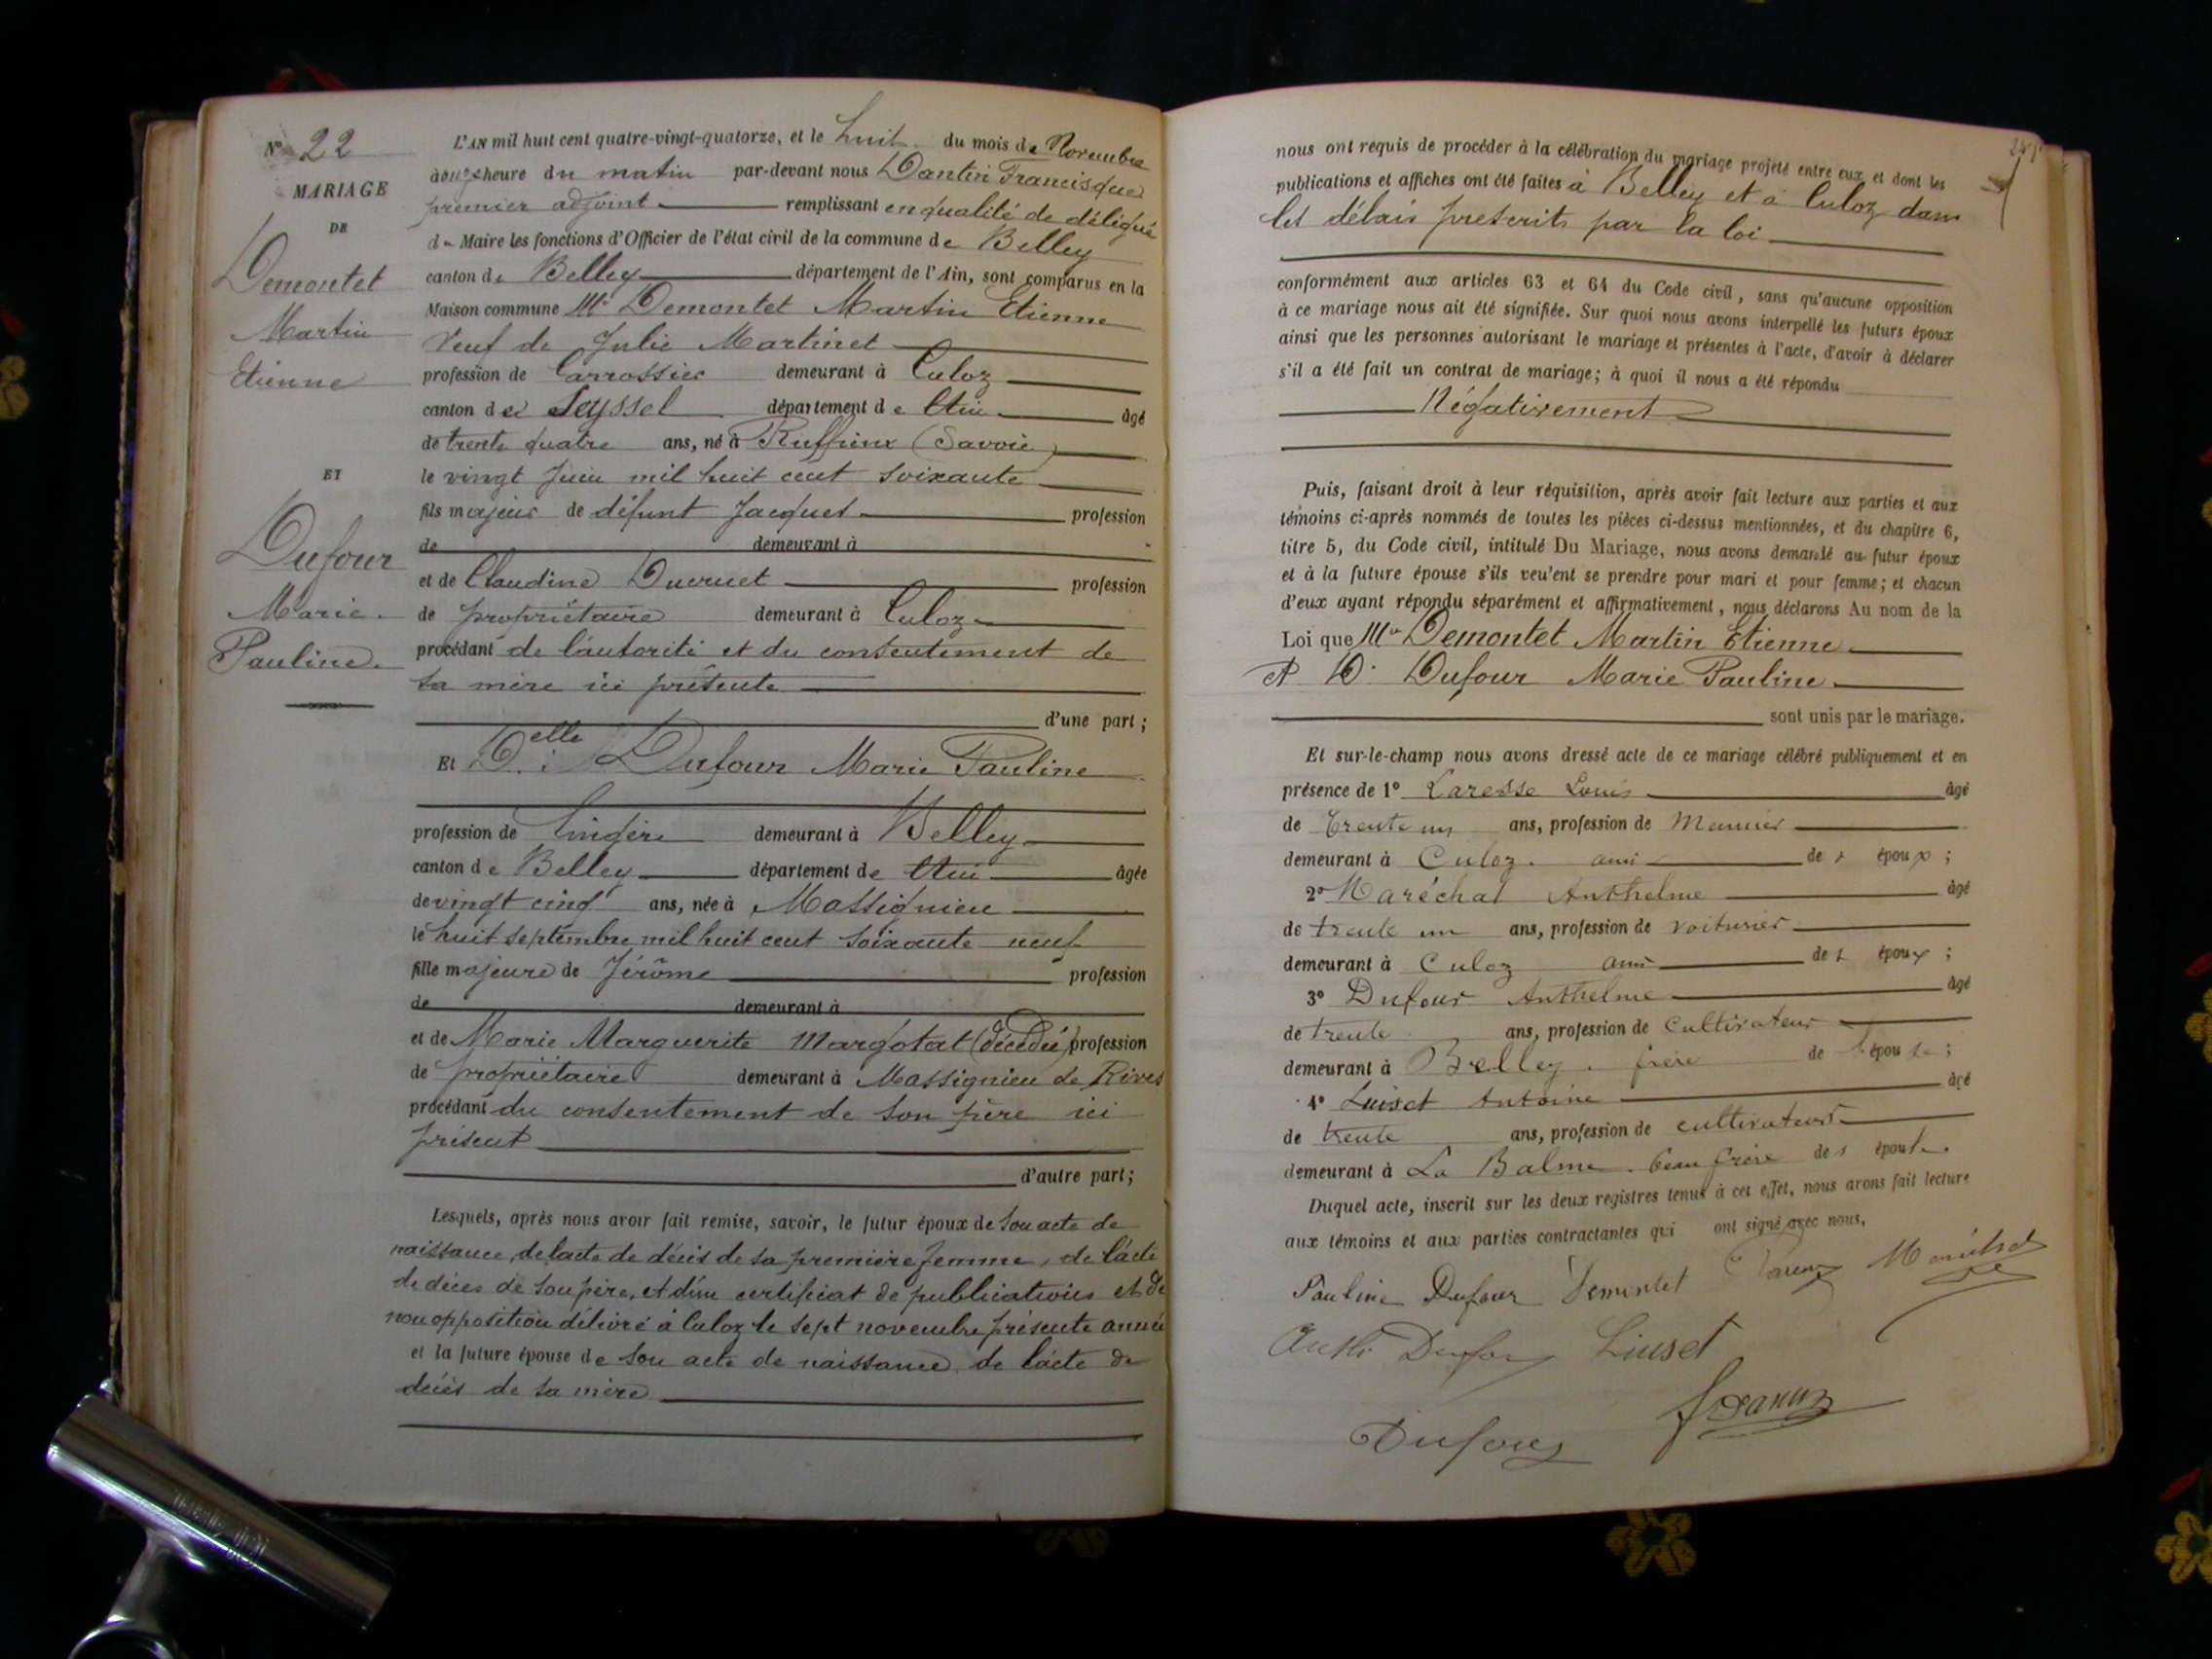 N° 22
MARIAGE
DE
Demontet
Martin
Etienne
ET
Dufour
Marie
Pauline.
L'AN mil huit cent quatre-vingt-quatorze, et le huit du mois de Novembre
à onze heure du matin par-devant nous Dantin Francisque
premier adjoint remplissant en qualité de délégué
de Maire les fonctions d'Officier de l'état civil de la commune de Belley
canton de Belley département de l'Ain, sont comparus en la
Maison commune Mr Demontet Martin Etienne
Veuf de Julie Martinet
profession de Carrossier demeurant à Culoz
canton de Seyssel département de l'Ain âgé
de trente quatre ans, né à Ruffieux (Savoie)
le vingt Juin mil huit cent soixante
fils majeur de défunt Jacques profession
de demeurant à
et de Claudine Ducruet profession
de propriétaire demeurant à Culoz
procédant de l'autorité et du consentement de
sa mère ici présente
d'une part ;
Et Delle Dufour Marie Pauline
profession de lingère demeurant à Belley
canton de Belley département de l'Ain âgée
de vingt cinq ans, née à Massignieu
le huit septembre mil huit cent soixante neuf
fille majeure de Jérôme profession
de demeurant à
et de Marie Marguerite Margotat (décédée) profession
de propriétaire demeurant à Massignieu de Rives
procédant du consentement de son père ici
présent
d'autre part ;
Lesquels, après nous avoir fait remise, savoir, le futur époux de son acte de
naissance, de l'acte de décès de sa première femme, de l'acte
de décès de son père, et d'un certificat de publications et de
non opposition délivré à Culoz le sept novembre présente année
et la future épouse de son acte de naissance, de l'acte de
décès de sa mère
nous ont requis de procéder à la célébration du mariage projeté entre eux et dont les
publications et affiches ont été faites à Belley et à Culoz dans
les délais prescrits par la loi
conformément aux articles 63 et 64 du Code civil, sans qu'aucune opposition
à ce mariage nous ait été signifiée. Sur quoi nous avons interpellé les futurs époux
ainsi que les personnes autorisant le mariage et présentes à l'acte, d'avoir à déclarer
s'il a été fait un contrat de mariage; à quoi il nous a été répondu
Négativement
Puis, faisant droit à leur réquisition, après avoir fait lecture aux parties et aux
témoins ci-après nommés de toutes les pièces ci-dessus mentionnées, et du chapitre 6,
titre 5, du Code civil, intitulé Du Mariage, nous avons demandé au futur époux
et à la future épouse s'ils veulent se prendre pour mari et pour femme; et chacun
d'eux ayant répondu séparément et affirmativement, nous déclarons Au nom de la
Loi que Mr Demontet Martin Etienne
et D. Dufour Marie Pauline
sont unis par le mariage.
Et sur-le-champ nous avons dressé acte de ce mariage célébré publiquement et en
présence de 1° Louis âgé
de trente un ans, profession de Meunier
demeurant à Culoz. ami de s époux ;
2° Maréchal Anthelme âgé
de trente un ans, profession de voiturier
demeurant à Culoz ami de s époux ;
3° Dufour Anthelme âgé
de trente ans, profession de cultivateur
demeurant à Belley. frère de l'épouse ;
4° Luiset Antoine âgé
de trente ans, profession de cultivateur
demeurant à La Balme. beau frère de s épouse.
Duquel acte, inscrit sur les deux registres tenus à cet effet, nous avons fait lecture
aux témoins et aux parties contractantes qui ont signé avec nous.
Pauline Dufour Demontet Maréchal
Anth Dufour Luiset
Dufour